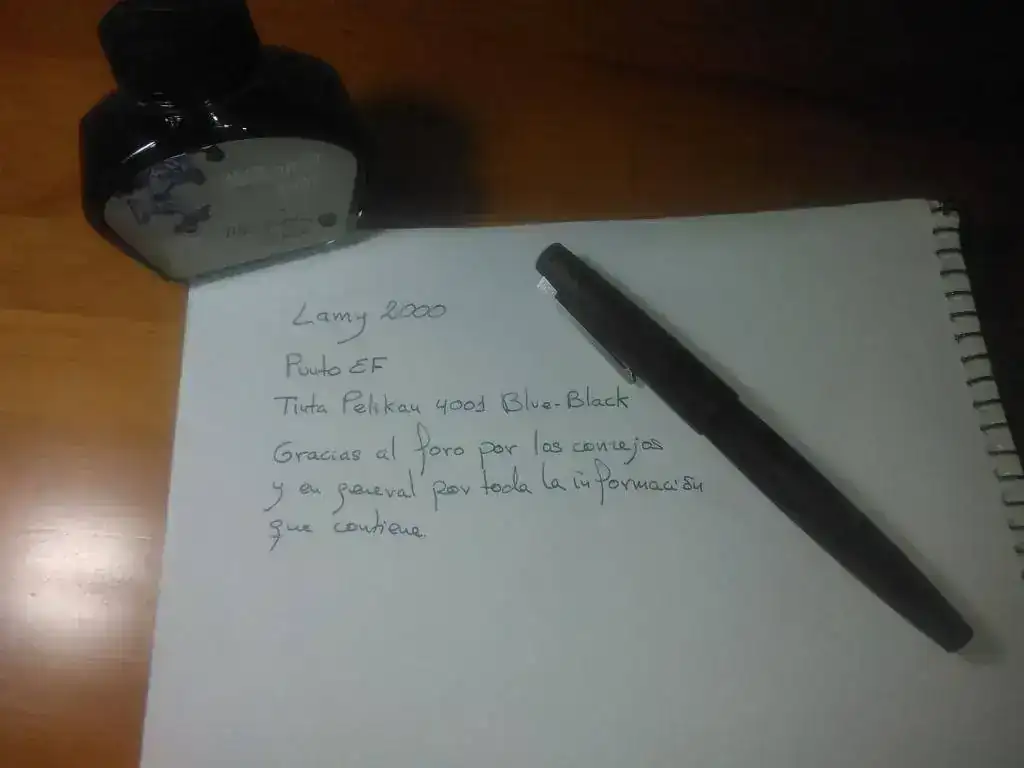 Lamy 2000
Punto EF
Tinta Pelikan 4001 Blue-Black
Gracias al foro por los consejos
y en general por toda la información
que contiene.